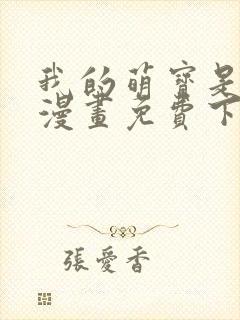 我的萌寶是
漫畫免費下
張愛香